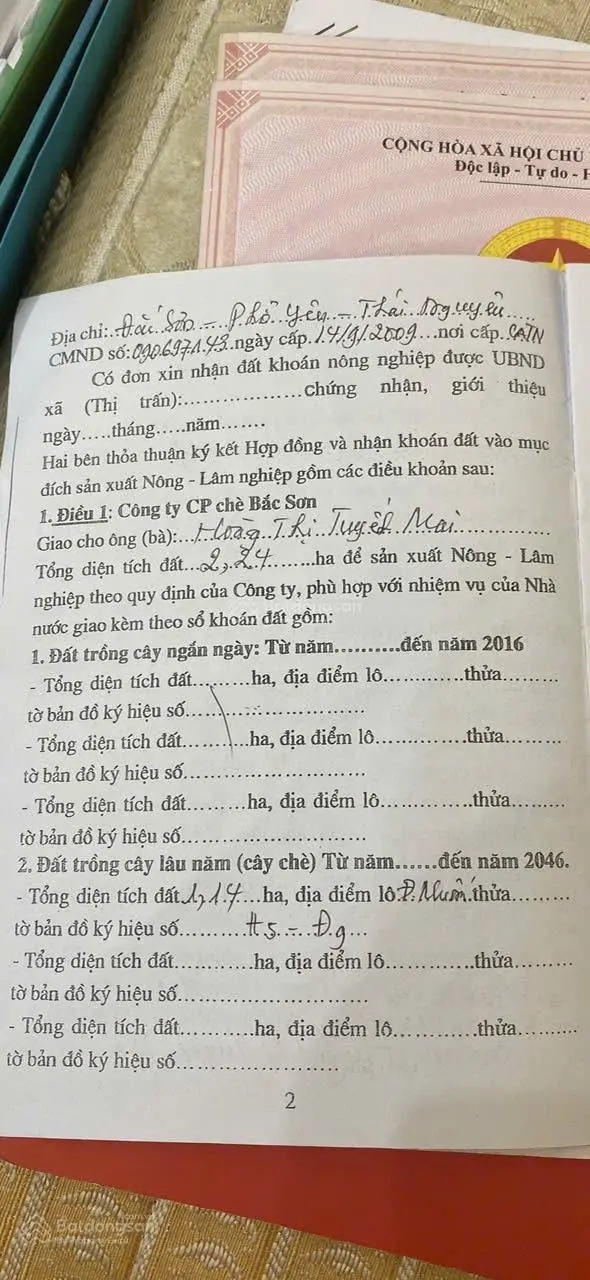 CỘNG HÒA XÃ HỘI CHỦ
Độc lập - Tự do - H
Địa chỉ: Đắc Sơn - Phổ Yên - Thái Nguyên
CMND số: 090697143 ngày cấp 14/9/2009 nơi cấp CATN
Có đơn xin nhận đất khoán nông nghiệp được UBND
xã (Thị trấn):..................chứng nhận, giới thiệu
ngày.....tháng.....năm.......
Hai bên thỏa thuận ký kết Hợp đồng và nhận khoán đất vào mục
đích sản xuất Nông - Lâm nghiệp gồm các điều khoản sau:
1. Điều 1: Công ty CP chè Bắc Sơn
Giao cho ông (bà):...Hoàng Thị Tuyết Mai...............
Tổng diện tích đất...2,24.......ha để sản xuất Nông - Lâm
nghiệp theo quy định của Công ty, phù hợp với nhiệm vụ của Nhà
nước giao kèm theo sổ khoán đất gồm:
1. Đất trồng cây ngắn ngày: Từ năm..........đến năm 2016
- Tổng diện tích đất..........ha, địa điểm lô.............thửa.........
tờ bản đồ ký hiệu số..............................
- Tổng diện tích đất..........ha, địa điểm lô..............thửa.........
tờ bản đồ ký hiệu số..............................
- Tổng diện tích đất..........ha, địa điểm lô..............thửa.........
tờ bản đồ ký hiệu số..............................
2. Đất trồng cây lâu năm (cây chè) Từ năm......đến năm 2046.
- Tổng diện tích đất 1,14...ha, địa điểm lô: thửa.........
tờ bản đồ ký hiệu số.........H5 - Đg...
- Tổng diện tích đất............ha, địa điểm lô..............thửa.........
tờ bản đồ ký hiệu số..............................
- Tổng diện tích đất............ha, địa điểm lô.............thửa..........
tờ bản đồ ký hiệu số..........................
2
Batdongsan